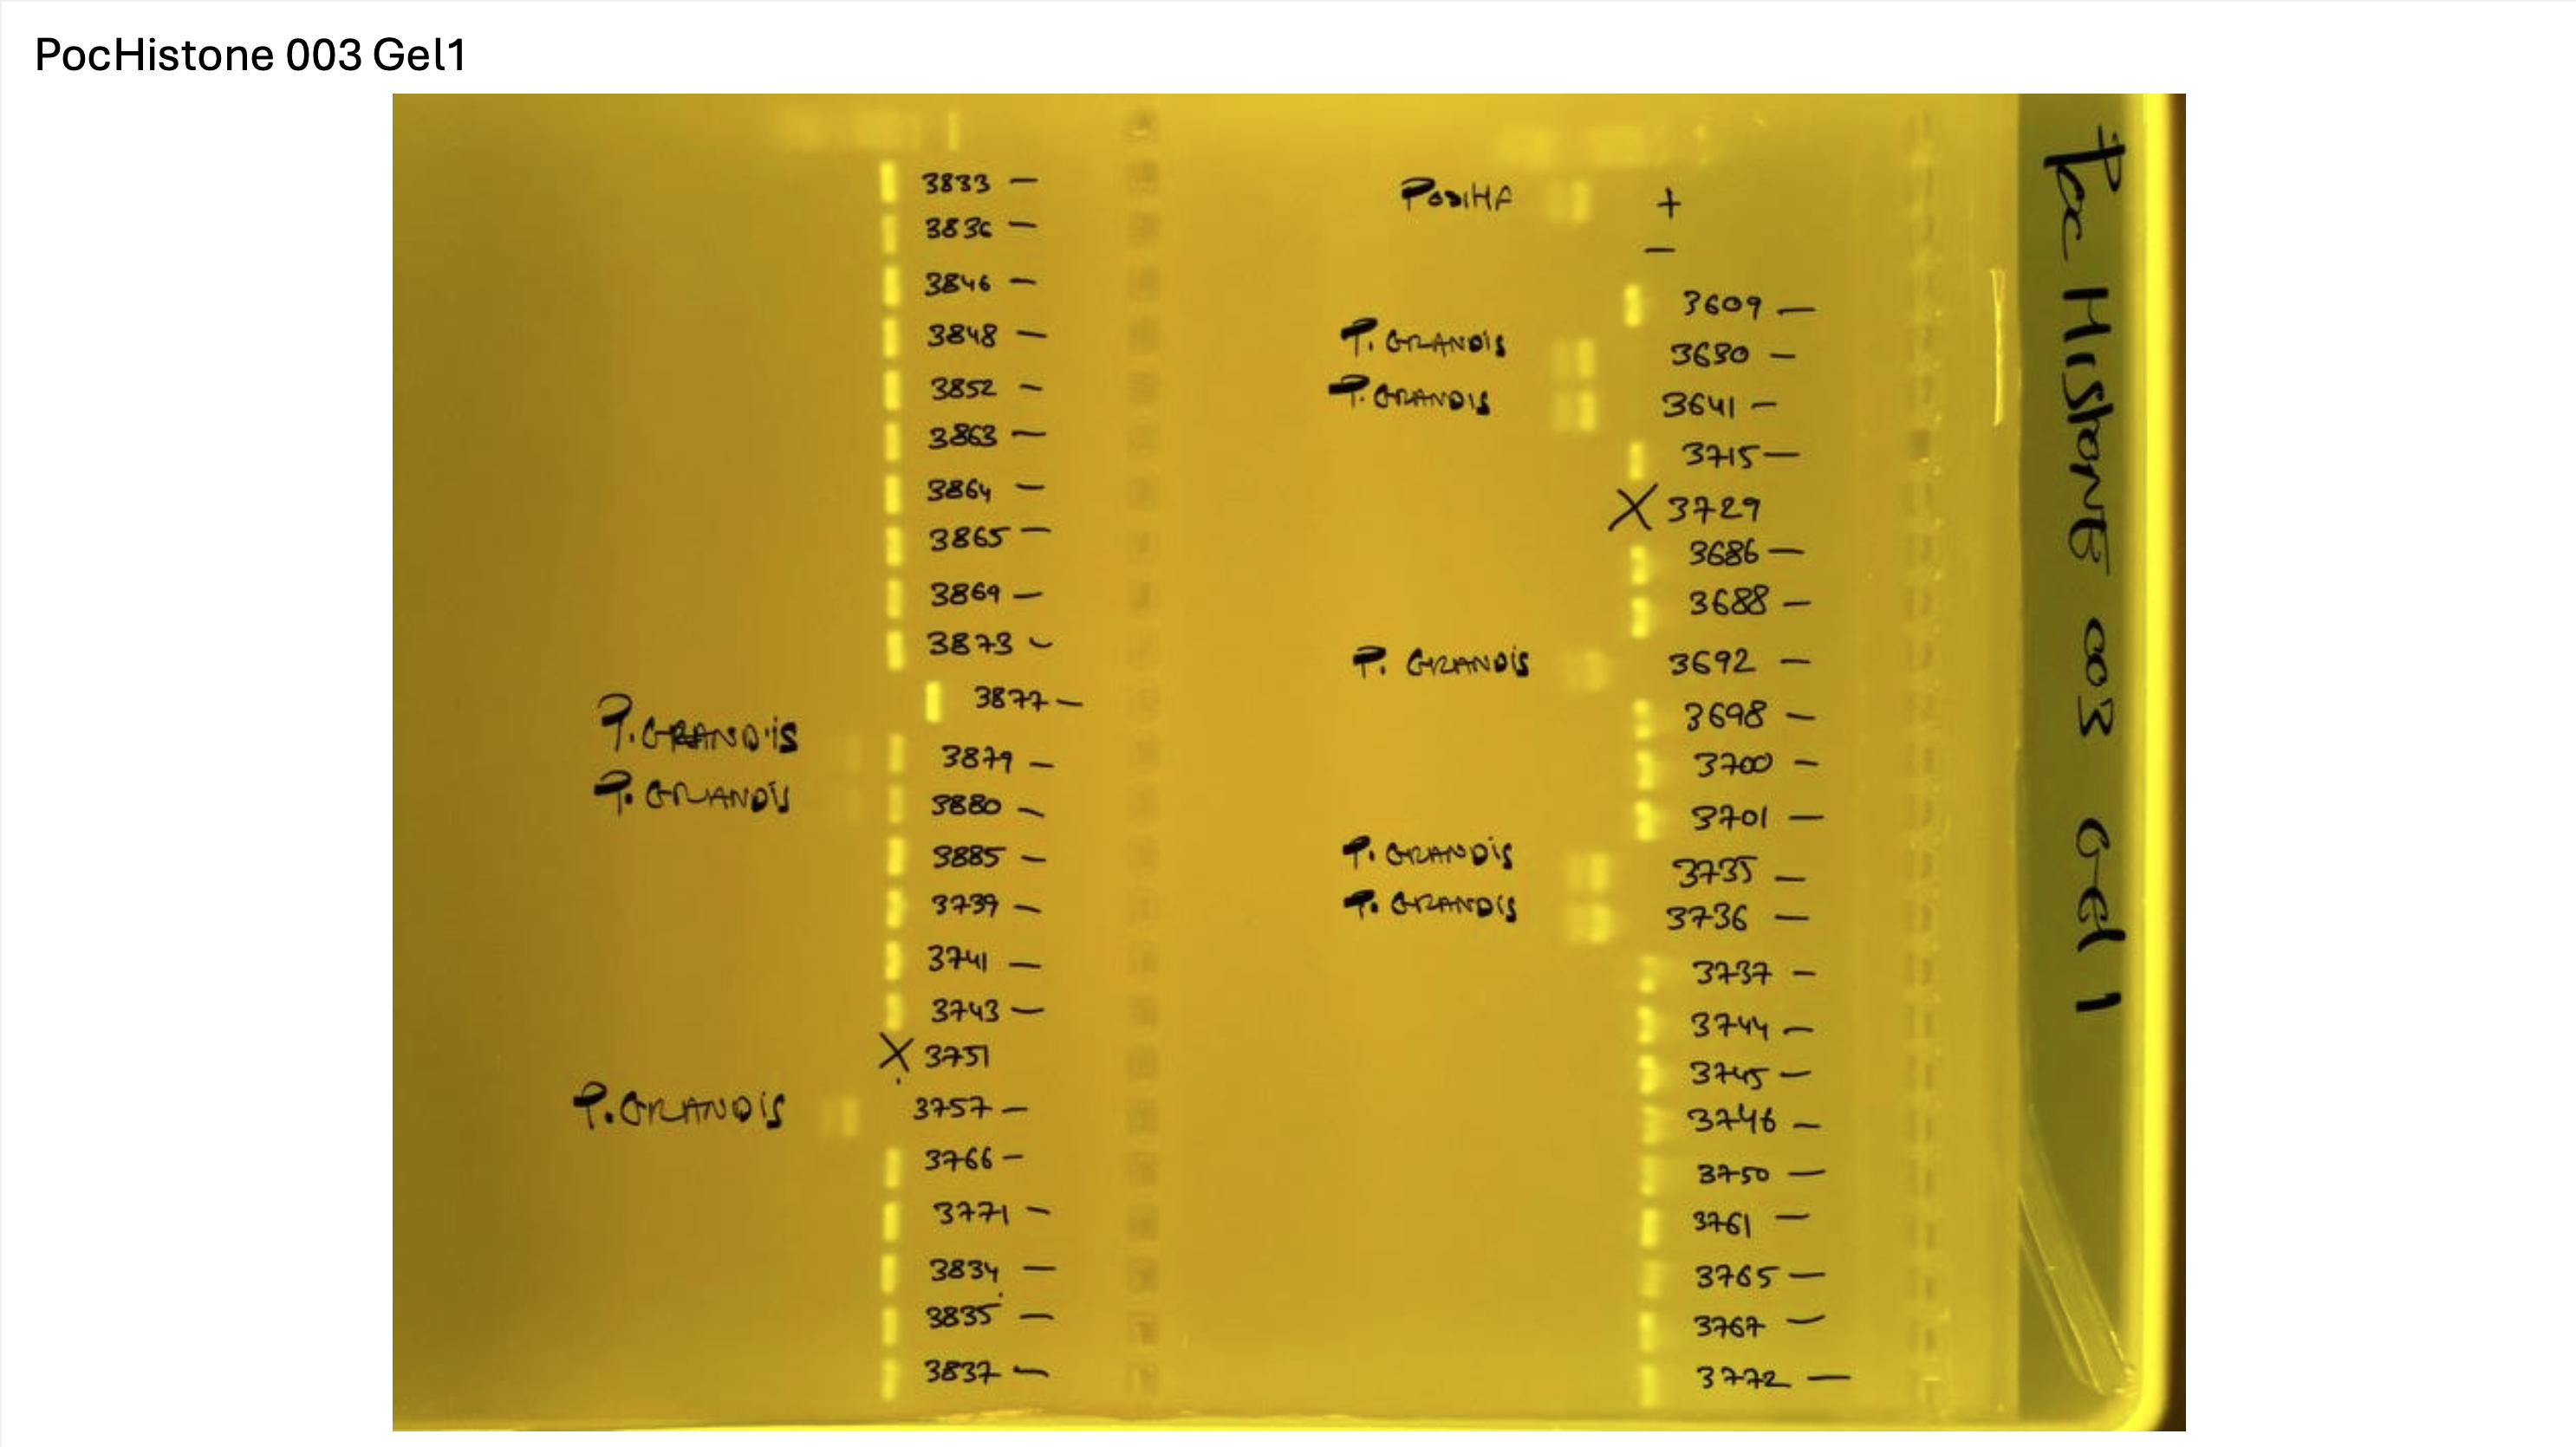 PocHistone 003 Gel1
3833 —
3836 —
3846 —
3848 —
3852 —
3863 —
3864 —
3865 —
3869 —
3873 —
3877 —
P. GRANDIS 3879 —
P. GRANDIS 3880 —
3885 —
3739 —
3741 —
3743 —
X 3751
P. GRANDIS 3757 —
3766 —
3771 —
3834 —
3835 —
3837 —
+
—
3609 —
P. GRANDIS 3630 —
P. GRANDIS 3641 —
3715 —
X 3729
3686 —
3688 —
P. GRANDIS 3692 —
3698 —
3700 —
3701 —
P. GRANDIS 3735 —
P. GRANDIS 3736 —
3737 —
3744 —
3745 —
3746 —
3750 —
3761 —
3765 —
3767 —
3772 —
Poc HISTONE 003 Gel 1